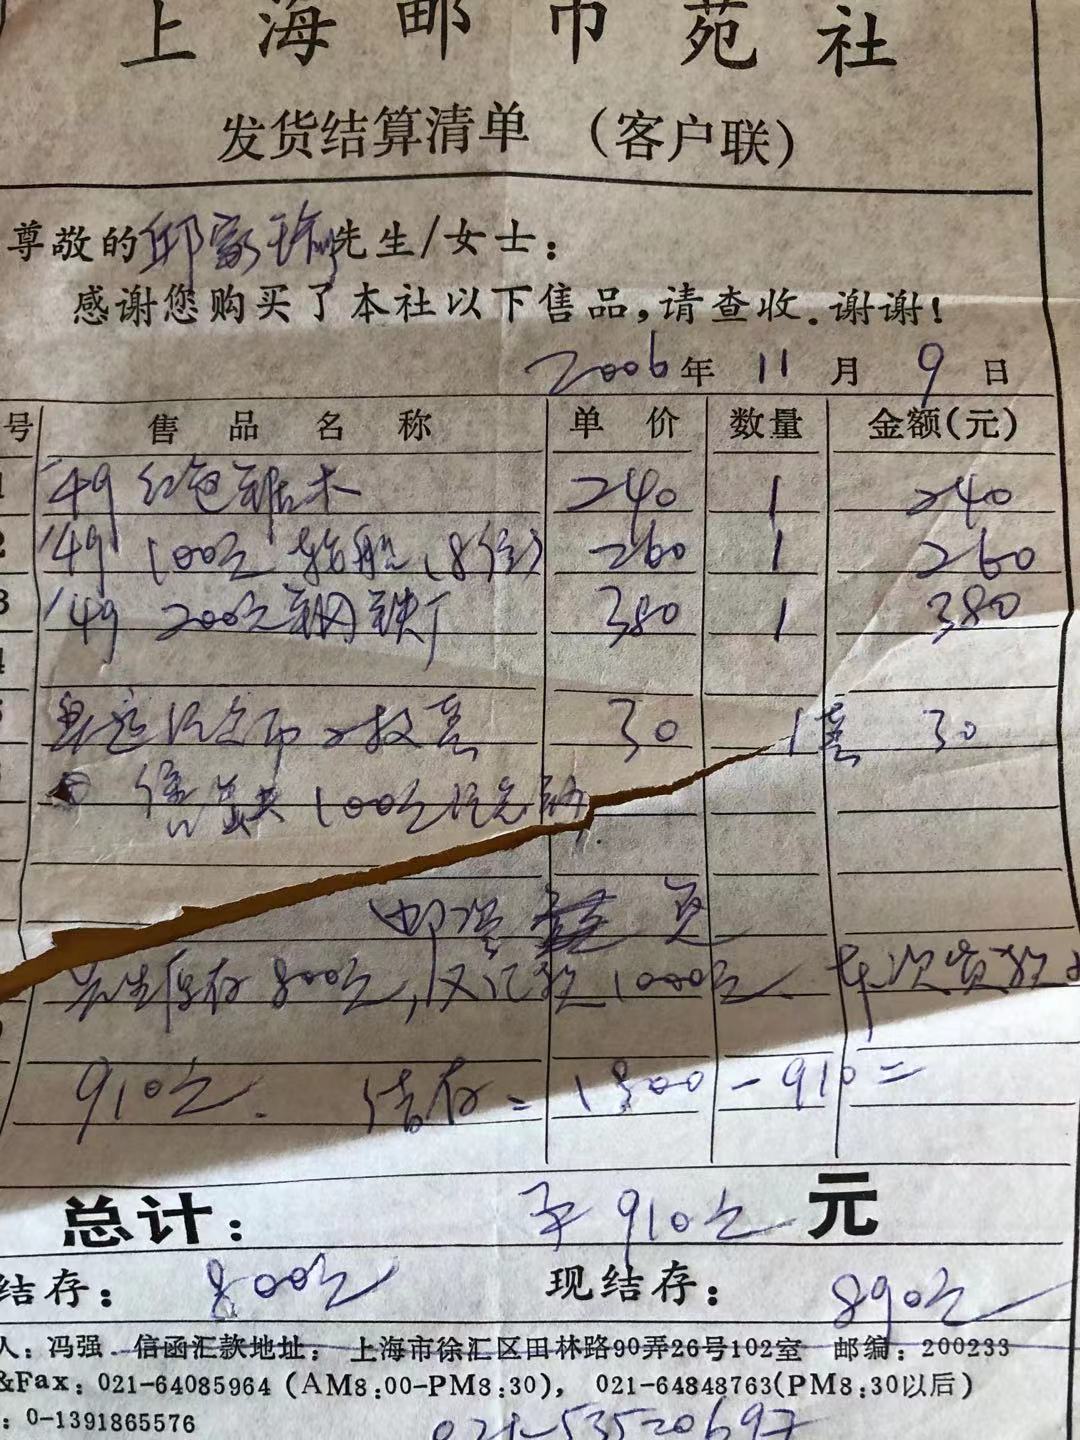 上海邮币苑社
发货结算清单 (客户联)
尊敬的邱家瑜先生/女士:
感谢您购买了本社以下售品,请查收.谢谢!
2006年 11月 9日
号 售品名称 单价 数量 金额(元)
'49 红色锯木 240 1 240
2 '49 100元轮船(8位) 260 1 260
3 '49 200元钢铁厂 380 1 380
4
纪念币2枚套 30 1套 30
暂缺100元
邮资 免
先生原存800元,又汇款1000元、本次货款
910元. 结存=1800-910=
总计: 平910元 元
结存: 800元 现结存: 890元
人: 冯强 信函汇款地址: 上海市徐汇区田林路90弄26号102室 邮编: 200233
&Fax: 021-64085964 (AM8:00-PM8:30), 021-64848763(PM8:30以后)
: 0-1391865576
021-53520697